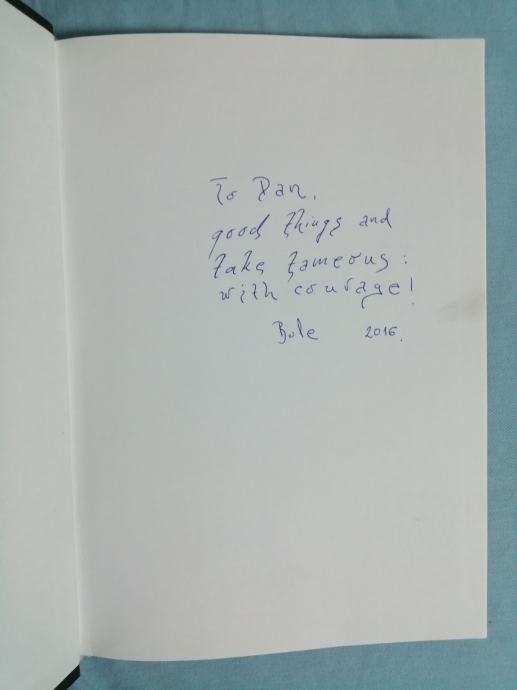 To Dan,
good things and
take
with courage!
Bole 2016.